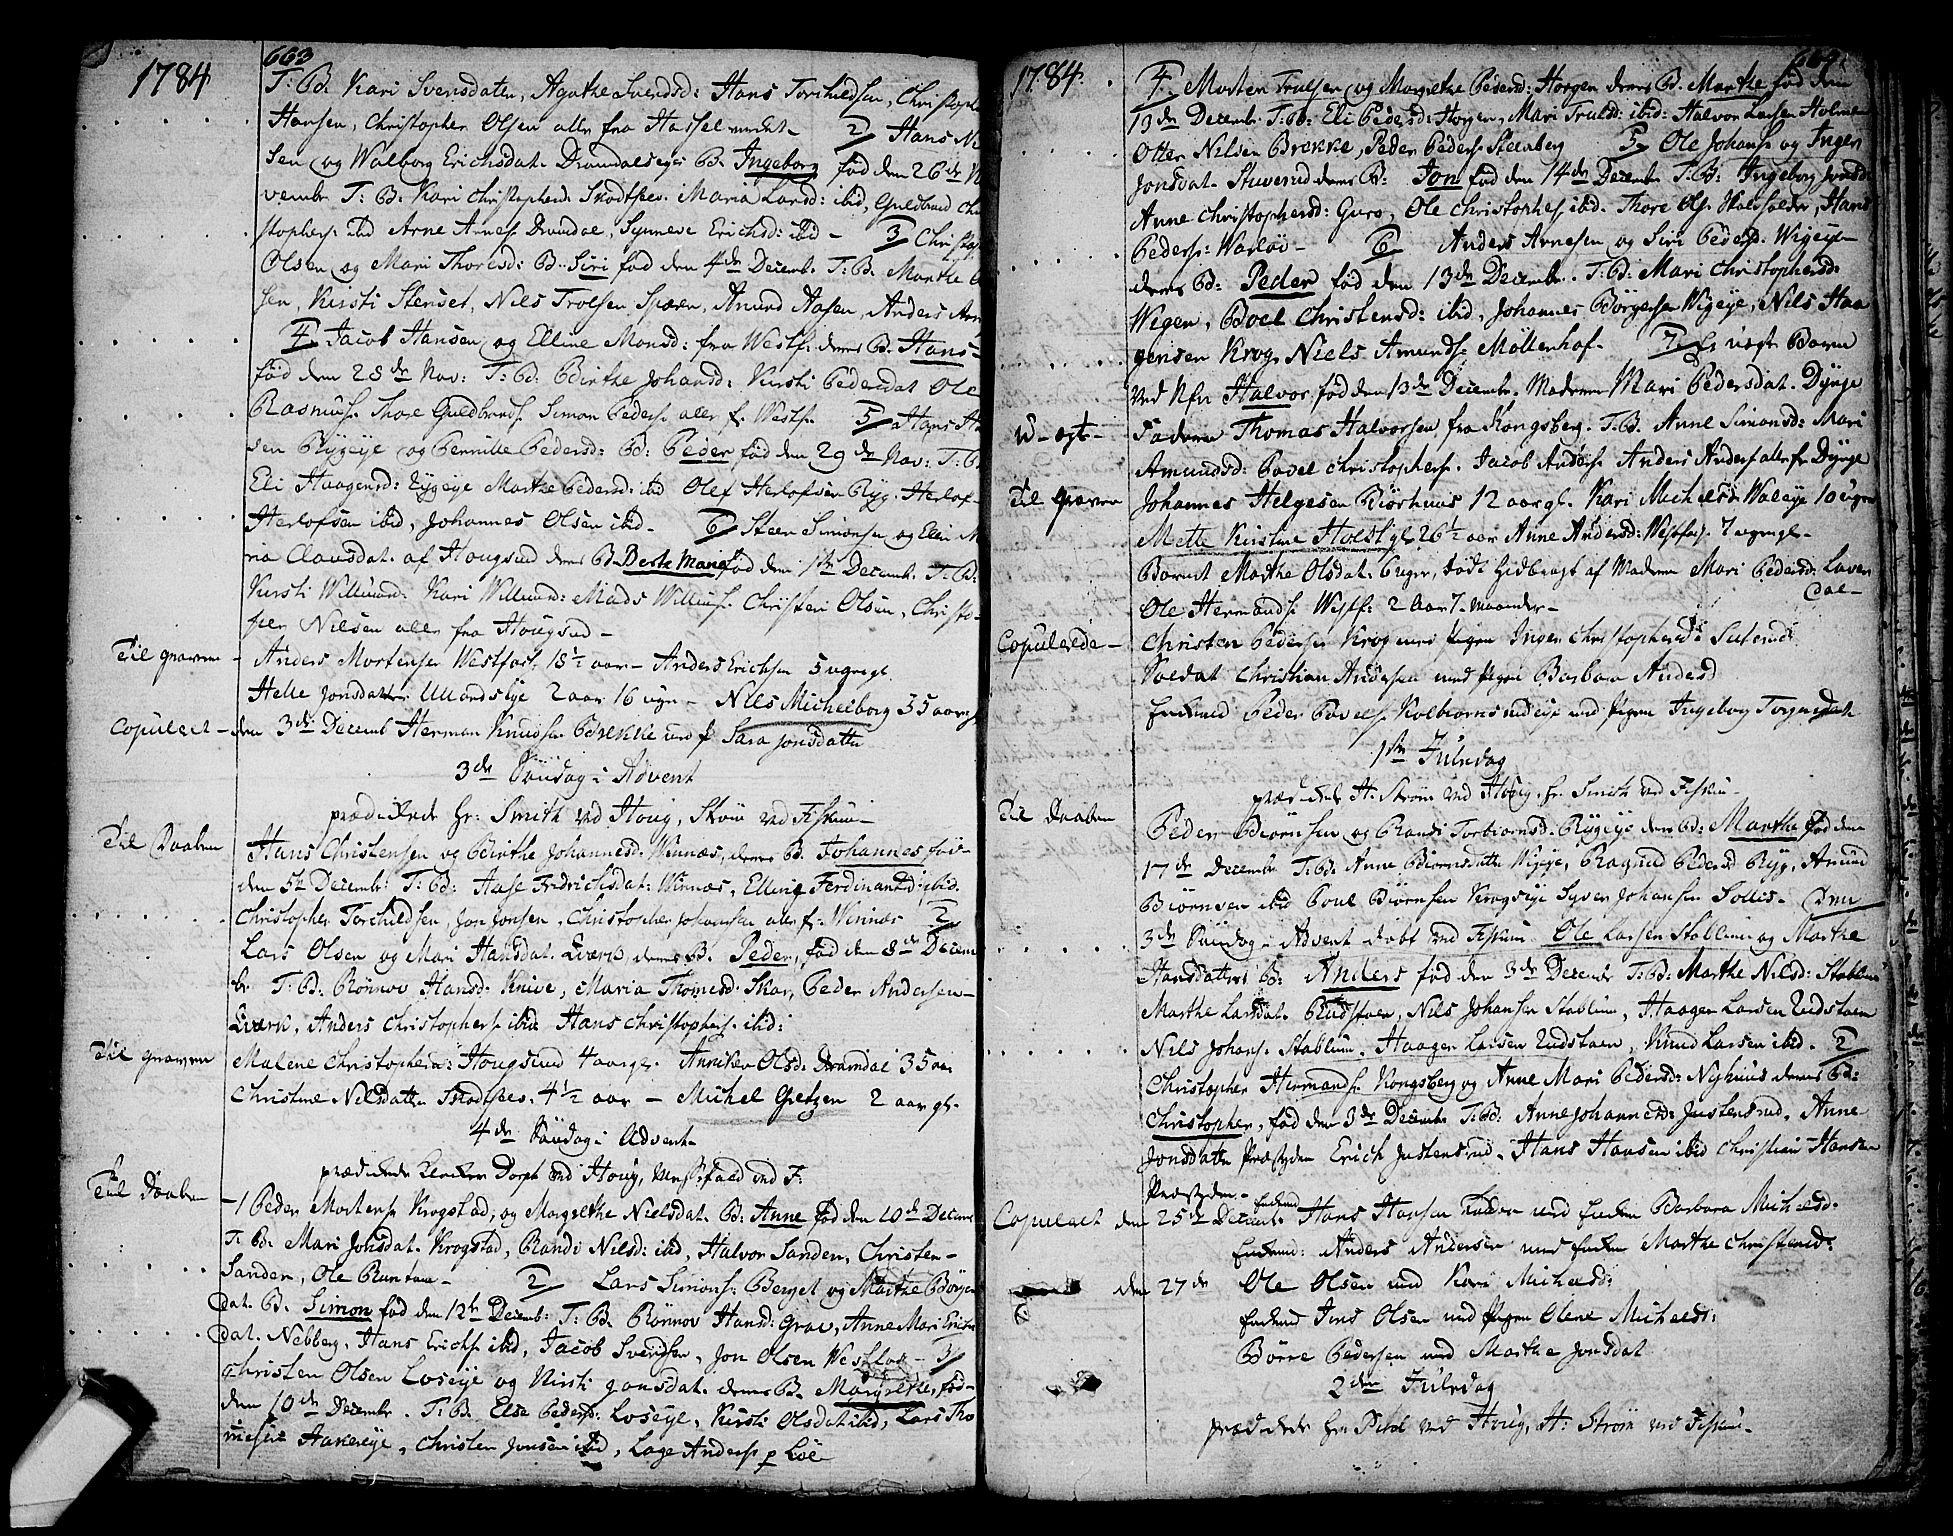 1784
663
T: B: Kari Svensdatter, Agathe Svendsd: Hans Torchildsen, Christoph
Hansen, Christopher Olsen alle fra Hassel 2/ Hans Ni
sen og Walborg Erichsdat. Dramdalseye B: Ingeborg fød den 26de N
vembr T: B: Kari Christophersd: Skodtsev. Maria Larsd: ibid, Guldbrand Chri
stophers. ibid Arne Arnes. Dramdal, Synneve Erichsd: ibid – 3/ Christoph
Olsen og Mari Thoresd: B: Siri fød den 4de Decemb. T: B: Marthe
sen, Kirsti Stenset, Nils Trolsen Spæren, Amund Aasen, Anders Arn
4/ Jacob Hansen og Elline Monsd: fra Westf. deres B. Hans
fød den 28de Nov: T: B: Birthe Johansd: Kirsti Pedersdat Ole
Rasmus. Thore Guldbrands. Simon Peders. alle f. Westf. 5/ Hans Ha
sen Rygeye og Pernille Pedersd: B: Peder fød den 29de Nov: T: B:
Eli Haagensd: Rygeye Marthe Pedersd: ibid Olef Herlofsen Ryg. Herlof
Herlofsen ibid, Johannes Olsen ibid – 6/ Steen Simonsen og Ellen M
ria Clausdat. af Hougsund deres B. Berte Maria fød den 1ste Decemb. T: B:
Kirsti Willumd: Kari Willumd: Mads Willums. Christen Olsen, Christo-
pher Nilsen alle fra Hougsund –
Til graven – Anders Mortensen Westfos. 18½ aar – Anders Erichsen 5 ugegl.
Helle Jonsdatter Ullandseye 2 aar 16 uger – Nils Michelborg 35 aar gl
Copuleret – den 3de Decemb Herman Knuds. Bække med p Sara Jonsdatter
3de Søndag i Advent
prædikede Hr: Smith ved Houg, Strøm ved Fiskum –
Til Daaben
Hans Christensen og Birthe Johannesd: Winnæs, deres B. Johannes fød
den 5te Decembr: T: B: Aase Fridrichsdat: Winnæs, Elling Ferdinands: ibid.
Christopher Torchildsen, Jon Jonsen, Christopher Johansen alle f. Winnæs 2/
Lars Olsen og Mari Hansdat. Lværk, deres B. Peder, fød den 8de Decem
br T: B: Rønnov Hansd: Knive, Maria Thomesd: Skar, Peder Andersen –
Lværk, Anders Christophers. ibid Hans Christophers. ibid:
Til graven
Malene Christophersd: Hougsund 4 aar gl. Anniken Olsd: Dramdal 35 aar
Christine Nilsdatter Skodtsev. 4½ aar – Michel Gretzen 2 aar gl.
4de Søndag i Advent
prædikede Dorph ved Houg, ved F:
Til Daaben
1 Peder Mortens. Krogstad, og Margrethe Nielsdat. B: Anne fød den 10de Decemb
T: B: Mari Jonsdat. Krogstad, Randi Nilsd: ibid, Halvor Sanden, Christen –
Sanden, Ole Runtom – 2/ Lars Simons. Berget og Marthe Børge
dat. B. Simon fød den 12te Decemb: T: B. Rønnov Hansd: Grav, Anne Mari Erichs
dat. Nebberg, Hans Erichs. ibid, Jacob Svendsen, Jon Olsen Westfos – 3/
Christen Olsen Loseye og Kirsti Jonsdat. deres B. Margrethe, fød
den 10de Decembr. T: B. Else Pedersd: Loseye, Kirsti Olsdat ibid, Lars Tho
mesen Aakereye, Christen Jonsen ibid, Lage Anders. p Løe
1784.
664.
4/ Morten Truelsen og Margrethe Pedersd: Horgen deres B. Marthe fød den
13de Decembr T: B: Eli Pedersd: Horgen, Mari Trulsd: ibid: Halvor Larsen Holme
Otter Nilsen Brekke, Peder Peders. Steenberg 5/ Ole Johans. og Inger
Jonsdat. Stuverud deres B: Jon fød den 14de Decembr T: B: Ingeborg Jonsd:
Anne Christophersd: Guro, Ole Christophers. ibid. Thore Ols. Hals, Hans
Peders: Warløi – 6/ Anders Arnesen og Siri Peders. Wigeye
deres B: Peder fød den 13de Decembr. T: B: Mari Christophersd:
Wegen, Boel Christensd: ibid, Johannes Børgersen Wigeye, Nils Haa
gensen Krog Niels Amunds. Møllenhof – 7/ Et uægt Barn
ved Nfn Halvor, fød den 13de Decembr. Moderen Mari Pedersdat. Dynge
U – egt – Faderen Thomas Halvorsen fra Kongsberg. T: B. Anne Simonsd: Mari
Amundsd: Povel Christophers. Jacob Anders. Anders Anders alle fr Dynge
Til graven Johannes Helgesen Biørhuus 12 aar gl. Kari Michelsd: Waleye 10 uger
Mette Kirstine Holst gl. 26½ aar Anne Andersd: Westfos. 7 uger gl –
Barnet Marthe Olsdat. 6 uger, død Hidbragt af Moderen Mari Pedersd: Laver
Ole Hermands. Westf: 2 aar 7 maaneder – dal –
Copulerede – Christen Pedersen Krog med Pigen Inger Christophersd:
Soldat Christian Andersen med Pigen Barbara Andersd
Enkemd Peder Povels. Kolbiørnsrudeye med Pigen Ingeborg Torgersdat.
1ste Juledag
prædikede H. Strøm ved Houg, Hr. Smith ved Fiskum –
Til Daaben
Peder Biørnsen og Randi Torbiørnsd: Rygeye deres B: Marthe fød den
17de Decembr T: B: Anne Biørnsdatter Wigeye, Ragnild Pedersd Ryg, Amund
Biørnsen ibid Poul Biørnsen Krogseye Syver Johansen Sollis – Den
3de Søndag i Advent døbt ved Fiskum. Ole Larsen Stablum og Marthe
Hansdatters B: Anders fød den 3de Decembr T: B: Marthe Nilsd: Stablum
Marthe Larsdat. Rudstøen, Nils Johansen Stablum, Haagen Larsen Rudstøen
Nils Johans. Stablum. Haagen Larsen Rudstøen, Knud Larsen ibid. 2/
Christopher Hermands. Kongsberg og Anne Mari Pedersd: Nyhuus deres B:
Christopher, fød den 3de Decembr T: B: Anne Johannesd: Justensrud. Anne
Jonsdatter Præstyden Erich Justensrud. Hans Hansen ibid Christian Hansen
Præstyden –
Copuleret den 25de Decemb. Enkemd Hans Hansen med Enken Barbara Michelsd.
Enkemd: Anders Andersen med Enken Marthe Christensd:
den 27de Ole Olsen med Kari Michelsd:
Enkemd Jens Olsen med Pigen Olene Michelsd:
Børre Pedersen med Marthe Jonsdat
2den Juledag
prædikede Hr. ved Houg, H: Strøm ved Fiskum –